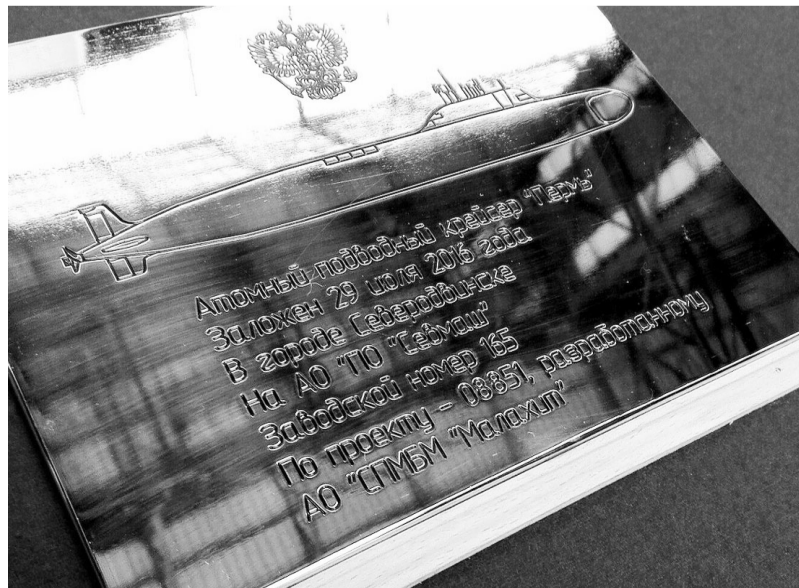 Атомный подводный крейсер "Пермь"
Заложен 29 июля 2016 года
В городе Северодвинске
На АО "ПО "Севмаш"
Заводской номер 165
По проекту - 08851, разработанному
АО "СПМБМ "Малахит"